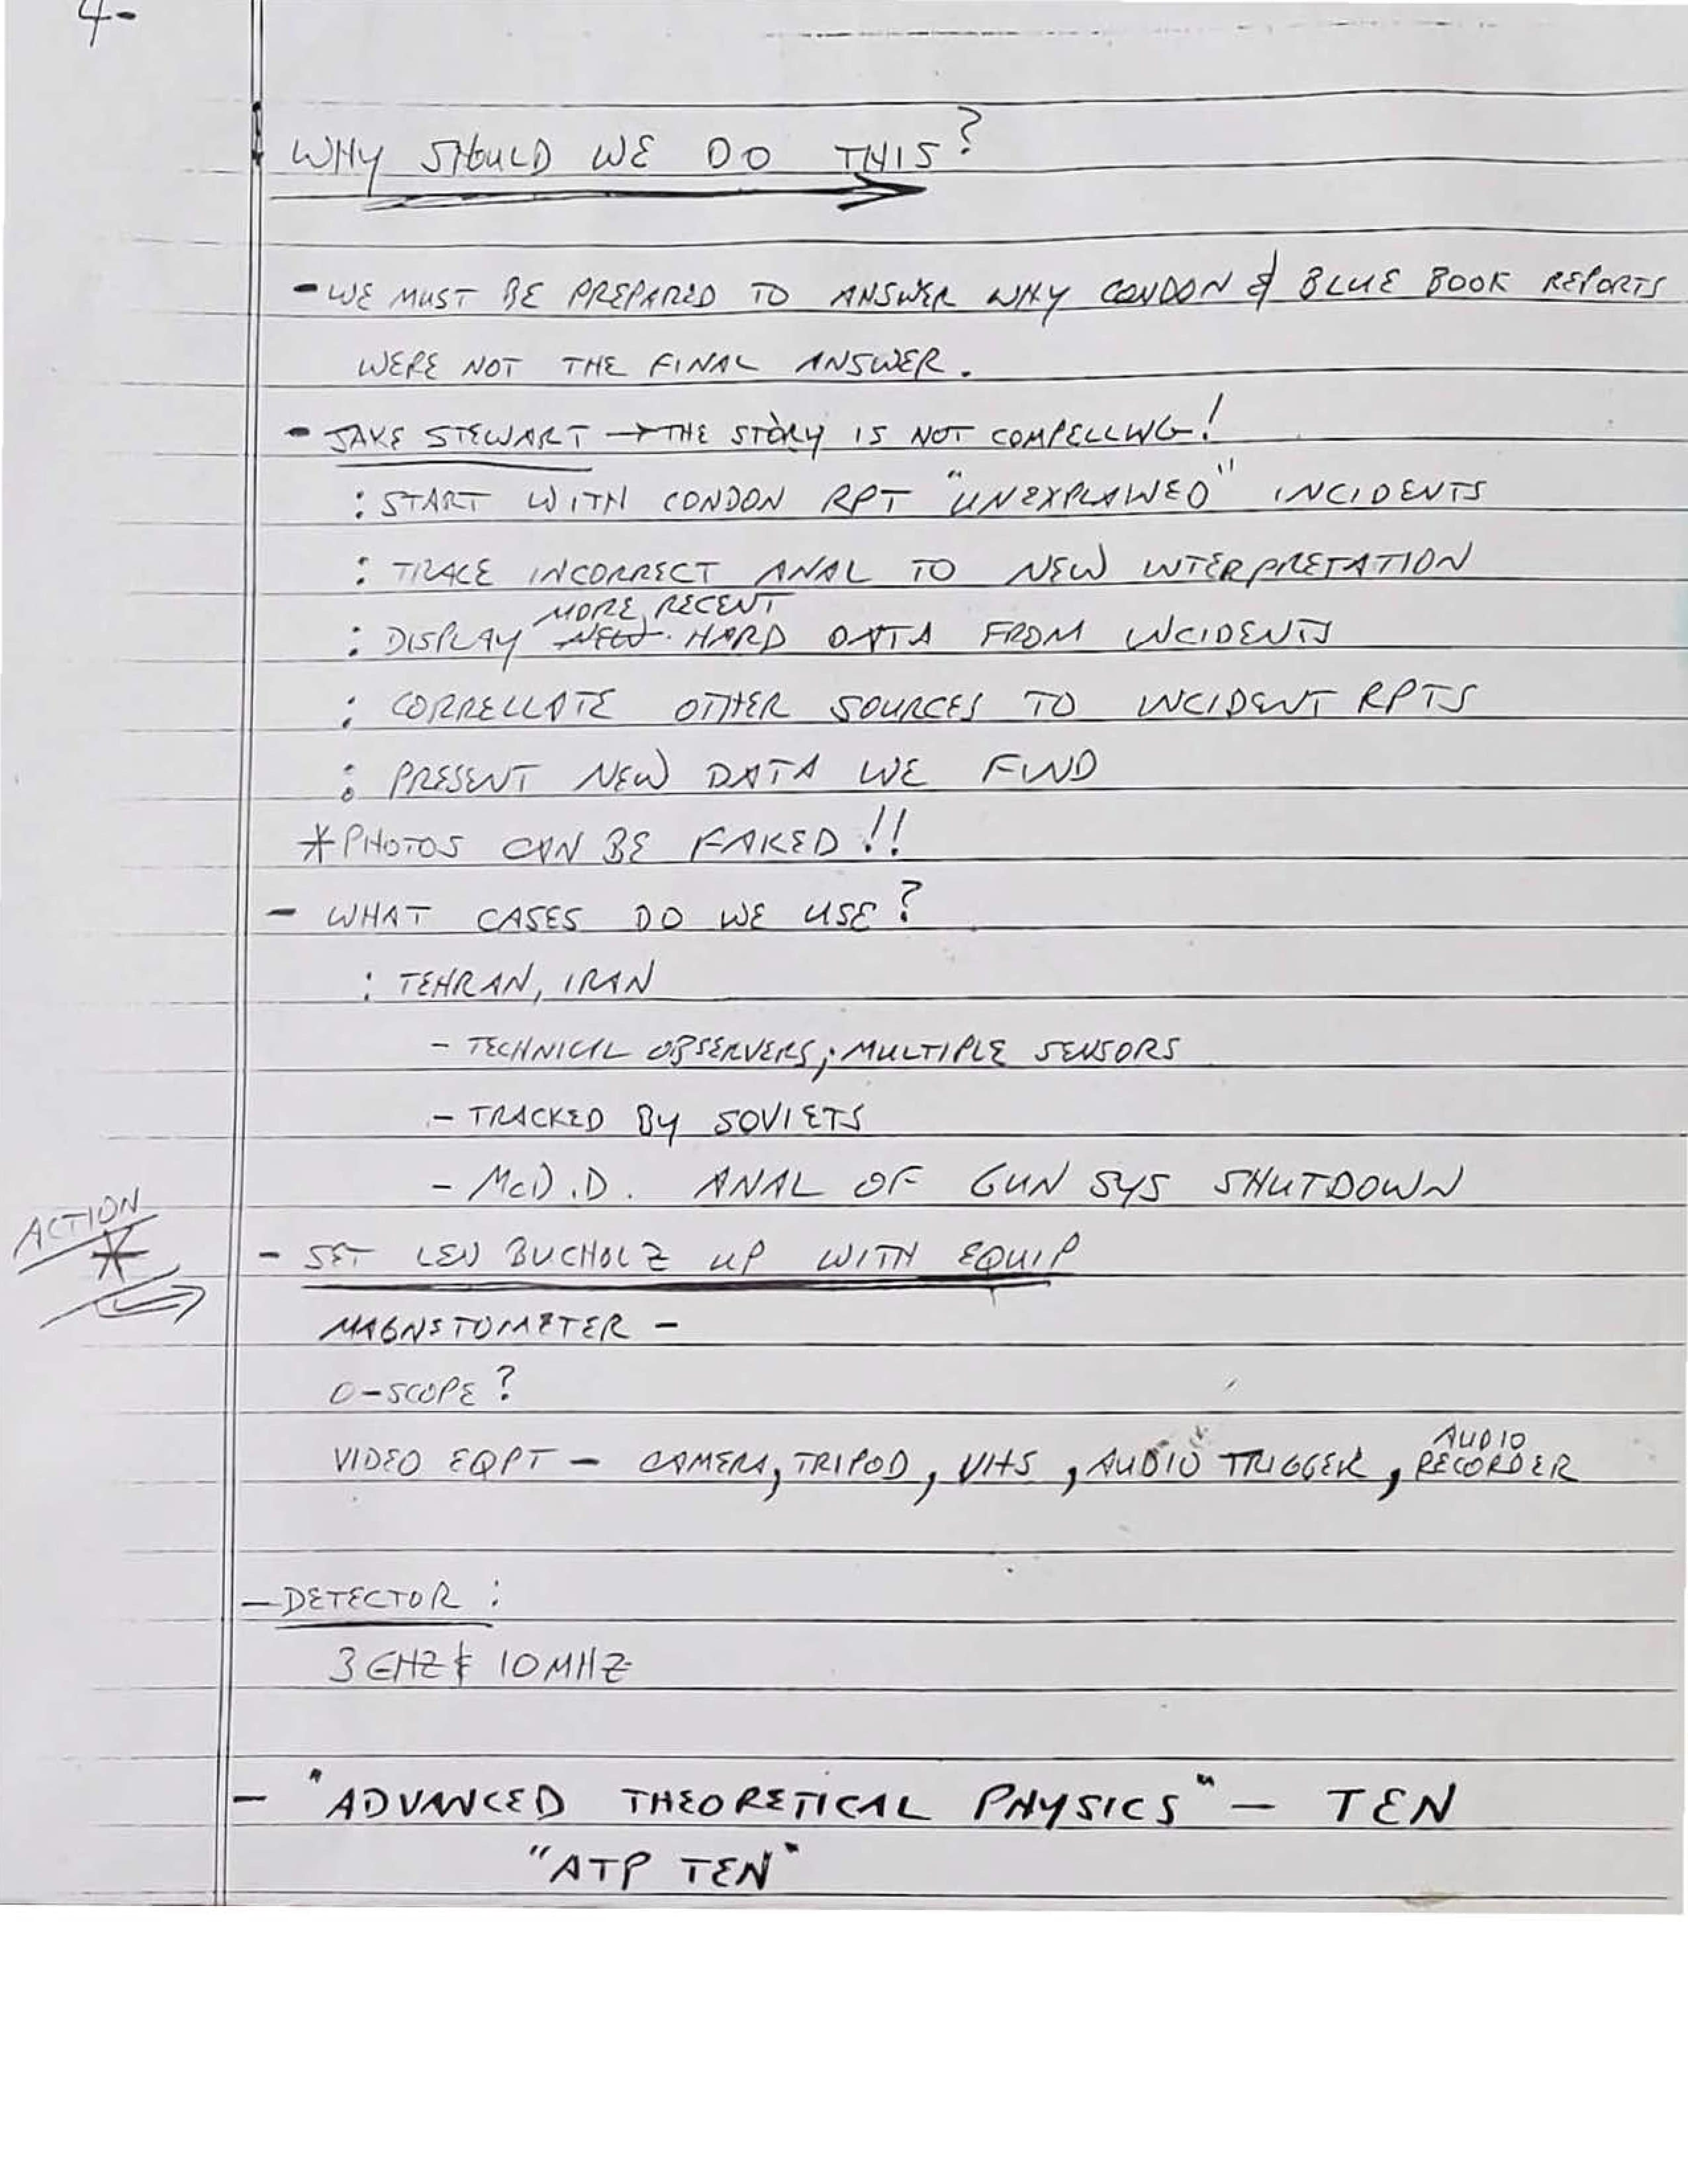 4-
WHY SHOULD WE DO THIS?
- WE MUST BE PREPARED TO ANSWER WHY CONDON & BLUE BOOK REPORTS
WERE NOT THE FINAL ANSWER.
- JAKE STEWART → THE STORY IS NOT COMPELLING!
: START WITH CONDON RPT "UNEXPLAINED" INCIDENTS
: TRACE INCORRECT ANAL TO NEW INTERPRETATION
MORE RECENT
: DISPLAY NEW HARD DATA FROM INCIDENTS
: CORRELLATE OTHER SOURCES TO INCIDENT RPTS
: PRESENT NEW DATA WE FIND
* PHOTOS CAN BE FAKED!!
- WHAT CASES DO WE USE?
: TEHRAN, IRAN
- TECHNICAL OBSERVERS; MULTIPLE SENSORS
- TRACKED BY SOVIETS
- McD.D. ANAL OF GUN SYS SHUTDOWN
ACTION
* - SET LEN BUCHOLZ UP WITH EQUIP
MAGNETOMETER -
O-SCOPE?
AUDIO
VIDEO EQPT - CAMERA, TRIPOD, VHS, AUDIO TRIGGER, RECORDER
- DETECTOR:
3 GHZ & 10 MHZ
- "ADVANCED THEORETICAL PHYSICS" - TEN
"ATP TEN"